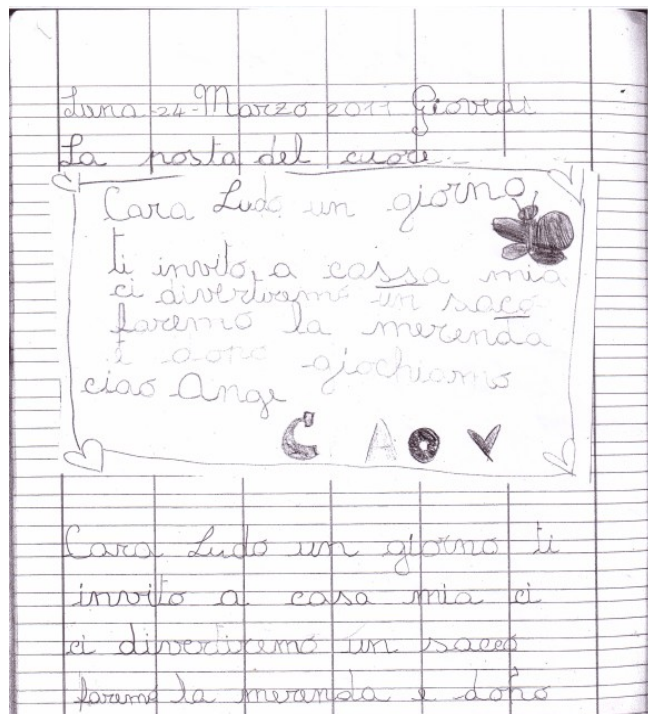 Luna 24 Marzo 2011 Giovedì
La posta del cuore
Cara Ludo un giorno
ti invito, a cassa mia
ci divertiremo un saco
faremo la merenda
e dopo giochiamo
ciao Ange
C A O
Cara Ludo un giorno ti
invito a casa mia ci
ci divertiremo un sacco
faremo la merenda e dopo